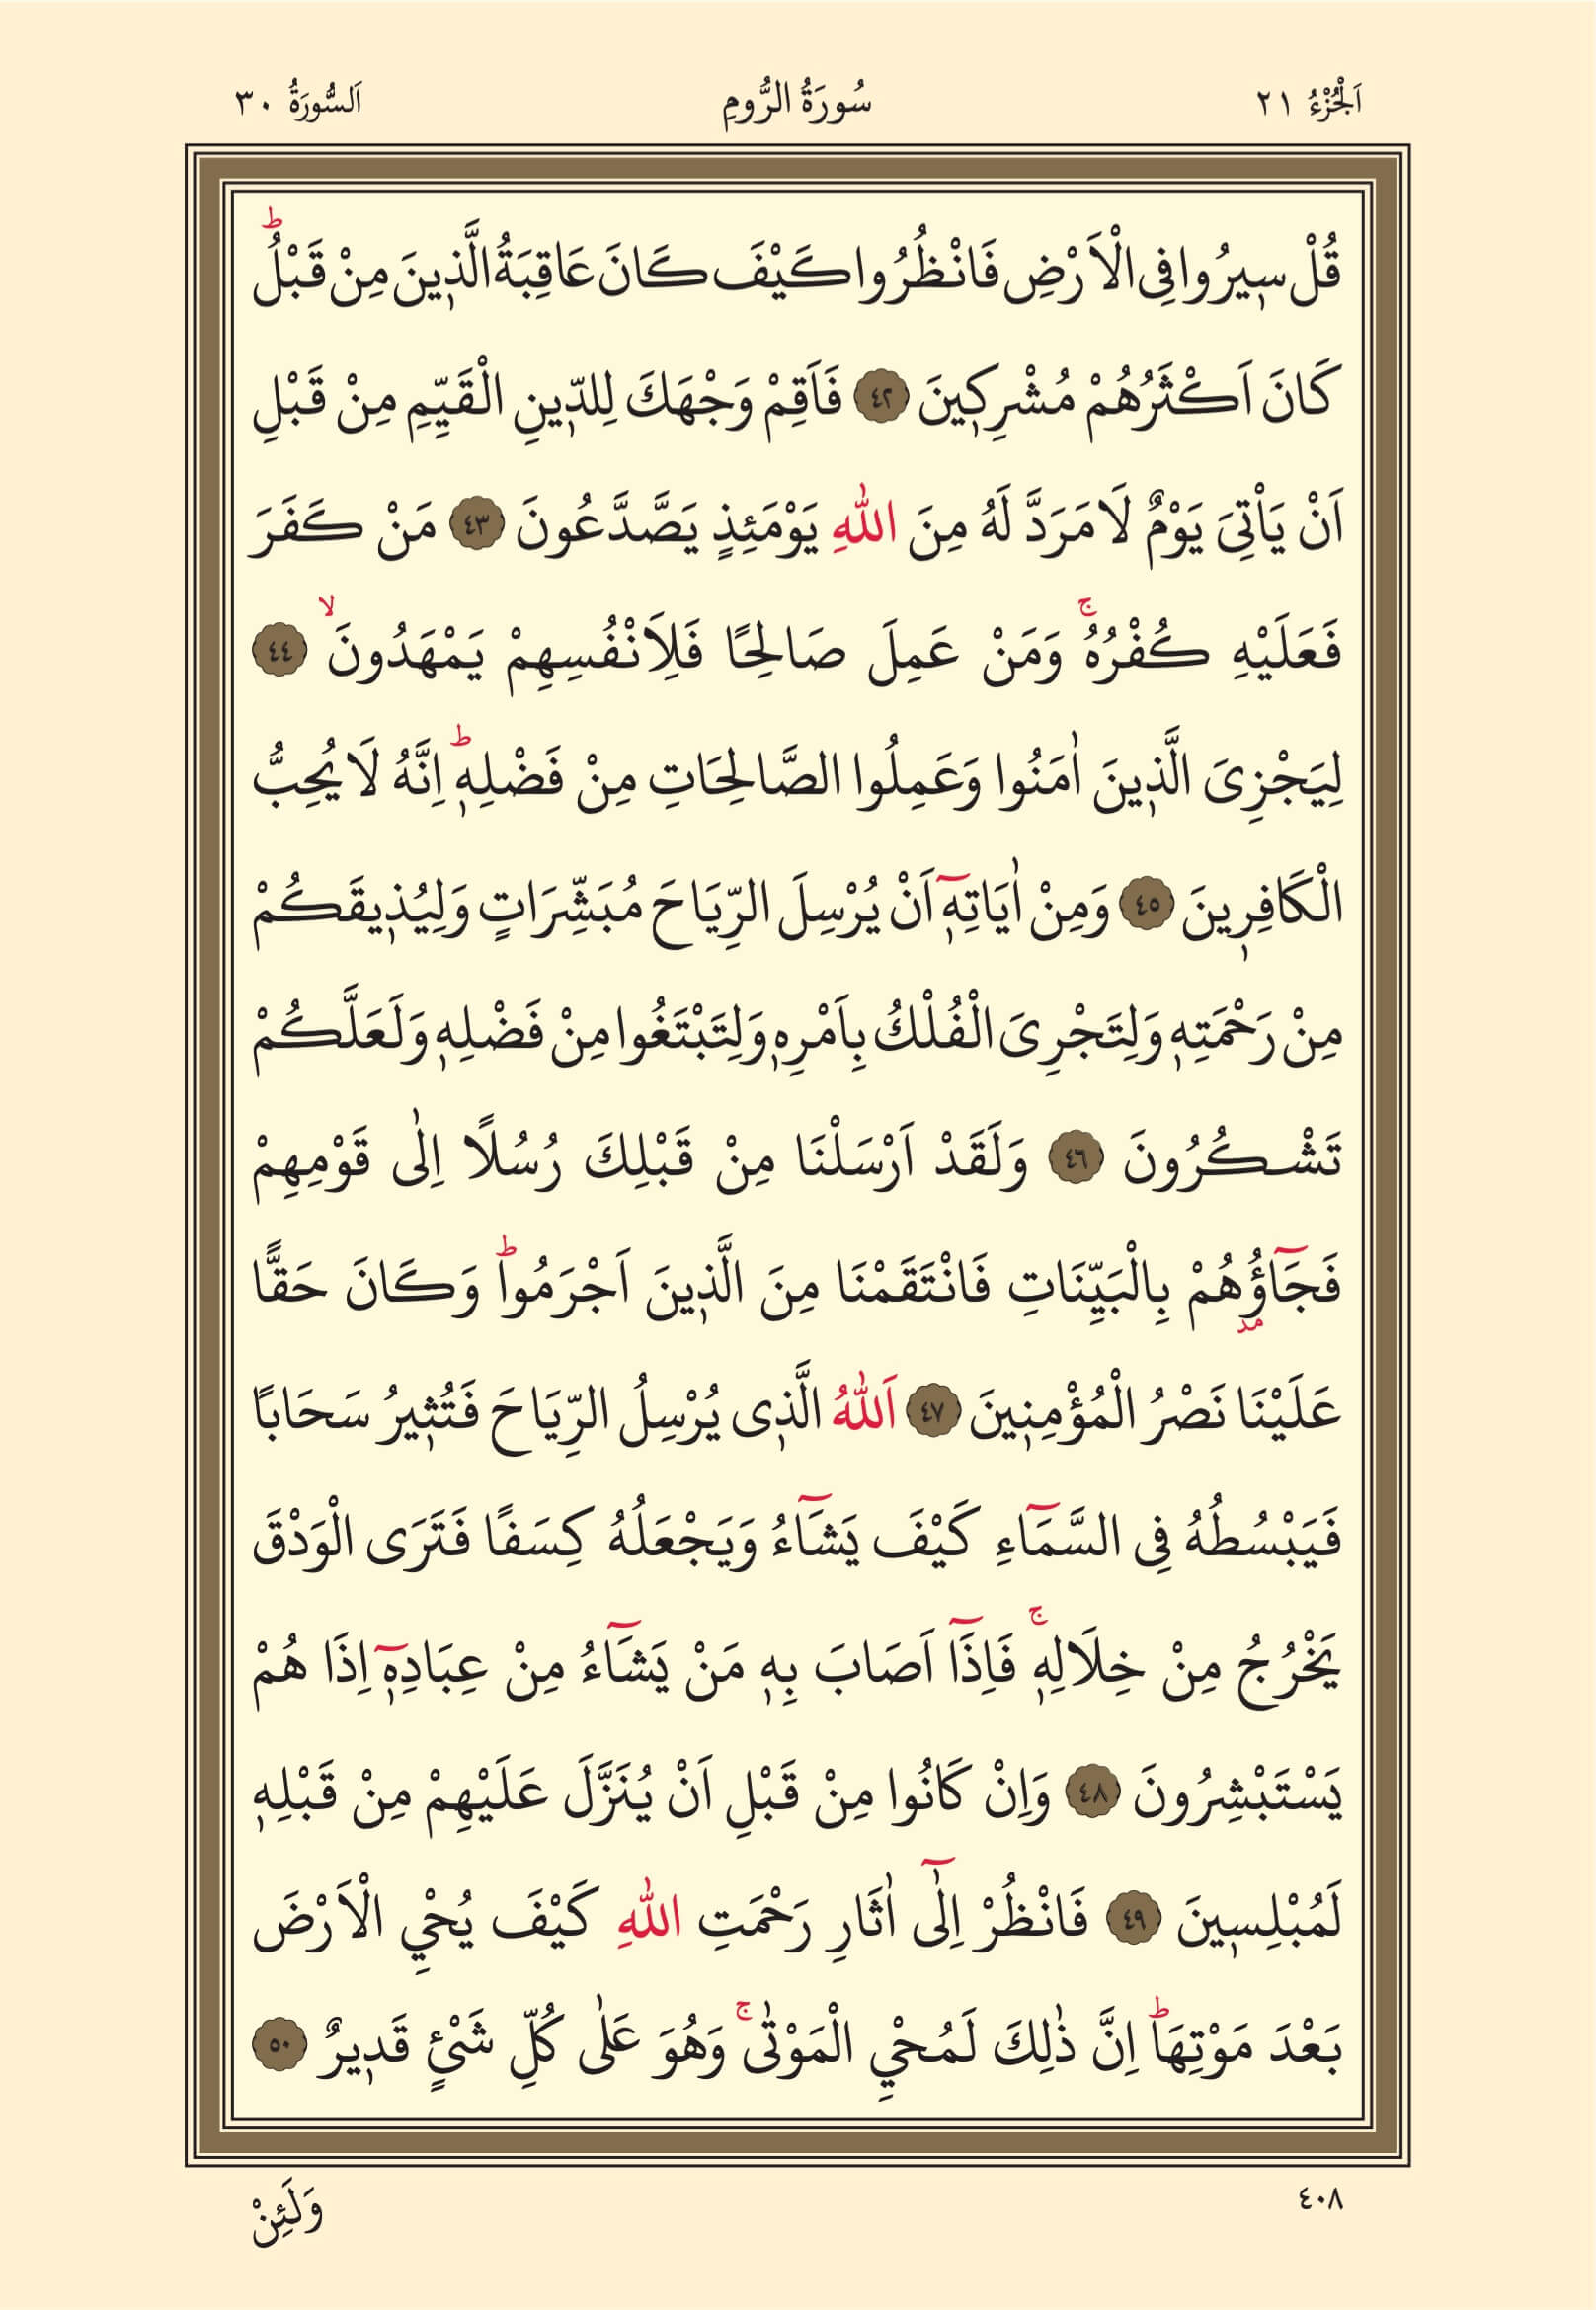 اَلْجُزْءُ ٢١
سُورَةُ الرُّومِ
اَلسُّورَةُ ٣٠
قُلْ سٖيرُوا فِى الْاَرْضِ فَانْظُرُوا كَيْفَ كَانَ عَاقِبَةُ الَّذٖينَ مِنْ قَبْلُؕ
كَانَ اَكْثَرُهُمْ مُشْرِكٖينَ ٤٢ فَاَقِمْ وَجْهَكَ لِلدّٖينِ الْقَيِّمِ مِنْ قَبْلِ
اَنْ يَاْتِىَ يَوْمٌ لَا مَرَدَّ لَهُ مِنَ اللّٰهِ يَوْمَئِذٍ يَصَّدَّعُونَ ٤٣ مَنْ كَفَرَ
فَعَلَيْهِ كُفْرُهُۚ وَمَنْ عَمِلَ صَالِحًا فَلِاَنْفُسِهِمْ يَمْهَدُونَۙ ٤٤
لِيَجْزِىَ الَّذٖينَ اٰمَنُوا وَعَمِلُوا الصَّالِحَاتِ مِنْ فَضْلِهٖؕ اِنَّهُ لَا يُحِبُّ
الْكَافِرٖينَ ٤٥ وَمِنْ اٰيَاتِهٖٓ اَنْ يُرْسِلَ الرِّيَاحَ مُبَشِّرَاتٍ وَلِيُذٖيقَكُمْ
مِنْ رَحْمَتِهٖ وَلِتَجْرِىَ الْفُلْكُ بِاَمْرِهٖ وَلِتَبْتَغُوا مِنْ فَضْلِهٖ وَلَعَلَّكُمْ
تَشْكُرُونَ ٤٦ وَلَقَدْ اَرْسَلْنَا مِنْ قَبْلِكَ رُسُلًا اِلٰى قَوْمِهِمْ
فَجَٓاؤُ۫هُمْ بِالْبَيِّنَاتِ فَانْتَقَمْنَا مِنَ الَّذٖينَ اَجْرَمُواؕ وَكَانَ حَقًّا
عَلَيْنَا نَصْرُ الْمُؤْمِنٖينَ ٤٧ اَللّٰهُ الَّذٖى يُرْسِلُ الرِّيَاحَ فَتُثٖيرُ سَحَابًا
فَيَبْسُطُهُ فِى السَّمَٓاءِ كَيْفَ يَشَٓاءُ وَيَجْعَلُهُ كِسَفًا فَتَرَى الْوَدْقَ
يَخْرُجُ مِنْ خِلَالِهٖۚ فَاِذَٓا اَصَابَ بِهٖ مَنْ يَشَٓاءُ مِنْ عِبَادِهٖٓ اِذَا هُمْ
يَسْتَبْشِرُونَ ٤٨ وَاِنْ كَانُوا مِنْ قَبْلِ اَنْ يُنَزَّلَ عَلَيْهِمْ مِنْ قَبْلِهٖ
لَمُبْلِسٖينَ ٤٩ فَانْظُرْ اِلٰٓى اٰثَارِ رَحْمَتِ اللّٰهِ كَيْفَ يُحْيِ الْاَرْضَ
بَعْدَ مَوْتِهَاؕ اِنَّ ذٰلِكَ لَمُحْيِ الْمَوْتٰىۚ وَهُوَ عَلٰى كُلِّ شَیْءٍ قَدٖيرٌ ٥٠
٤٠٨
وَلَئِنْ